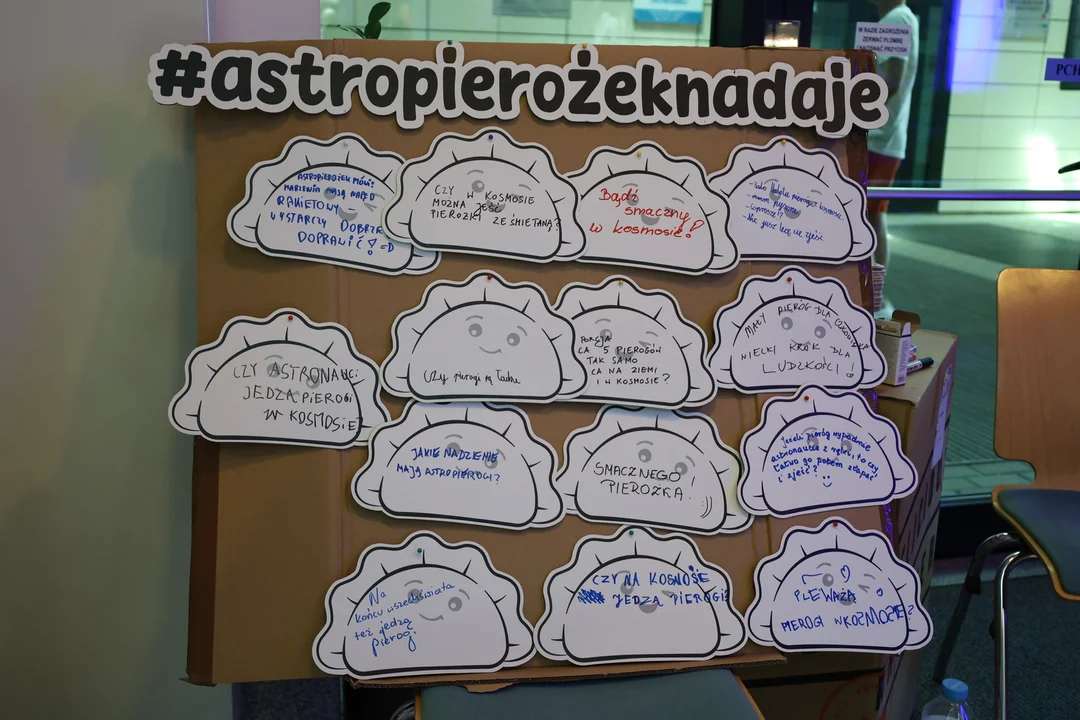 #astropierożeknadaje
W RAZIE ZAGROŻENIA
ZERWAĆ PLOMBĘ
I NACISNĄĆ PRZYCISK
PCH
ASTROPIEROŻEK MÓWI:
MARZENIA MAJĄ NAPĘD
RAKIETOWY
WYSTARCZY DOBRZE
DOPRAWIĆ! =D
CZY W KOSMOSIE
MOŻNA JEŚĆ
PIEROŻKI ZE ŚMIETANĄ?
Bądź
smaczny
w kosmosie!
kosmosie
CZY ASTRONAUCI
JEDZĄ PIEROGI
W KOSMOSIE?
Czy pierogi są
PORCJA
CA 5 PIEROGÓW
TAK SAMO
CA NA ZIEMI
I W KOSMOSIE?
MAŁY PIERÓG DLA CZŁOWIEKA
WIELKI KROK DLA
LUDZKOŚCI!
JAKIE NADZIENIE
MAJĄ ASTROPIEROGI?
SMACZNEGO!
PIEROŻKA.
Jeżeli pieróg wypadnie
astronaucie z ręki, to czy
łatwo go potem złapać
i zjeść?
Na
końcu wszechświata
też jedzą
pierogi
CZY NA KOSMOSIE
JEDZĄ PIEROGI?
PIEROGI W KOZMOCIE?